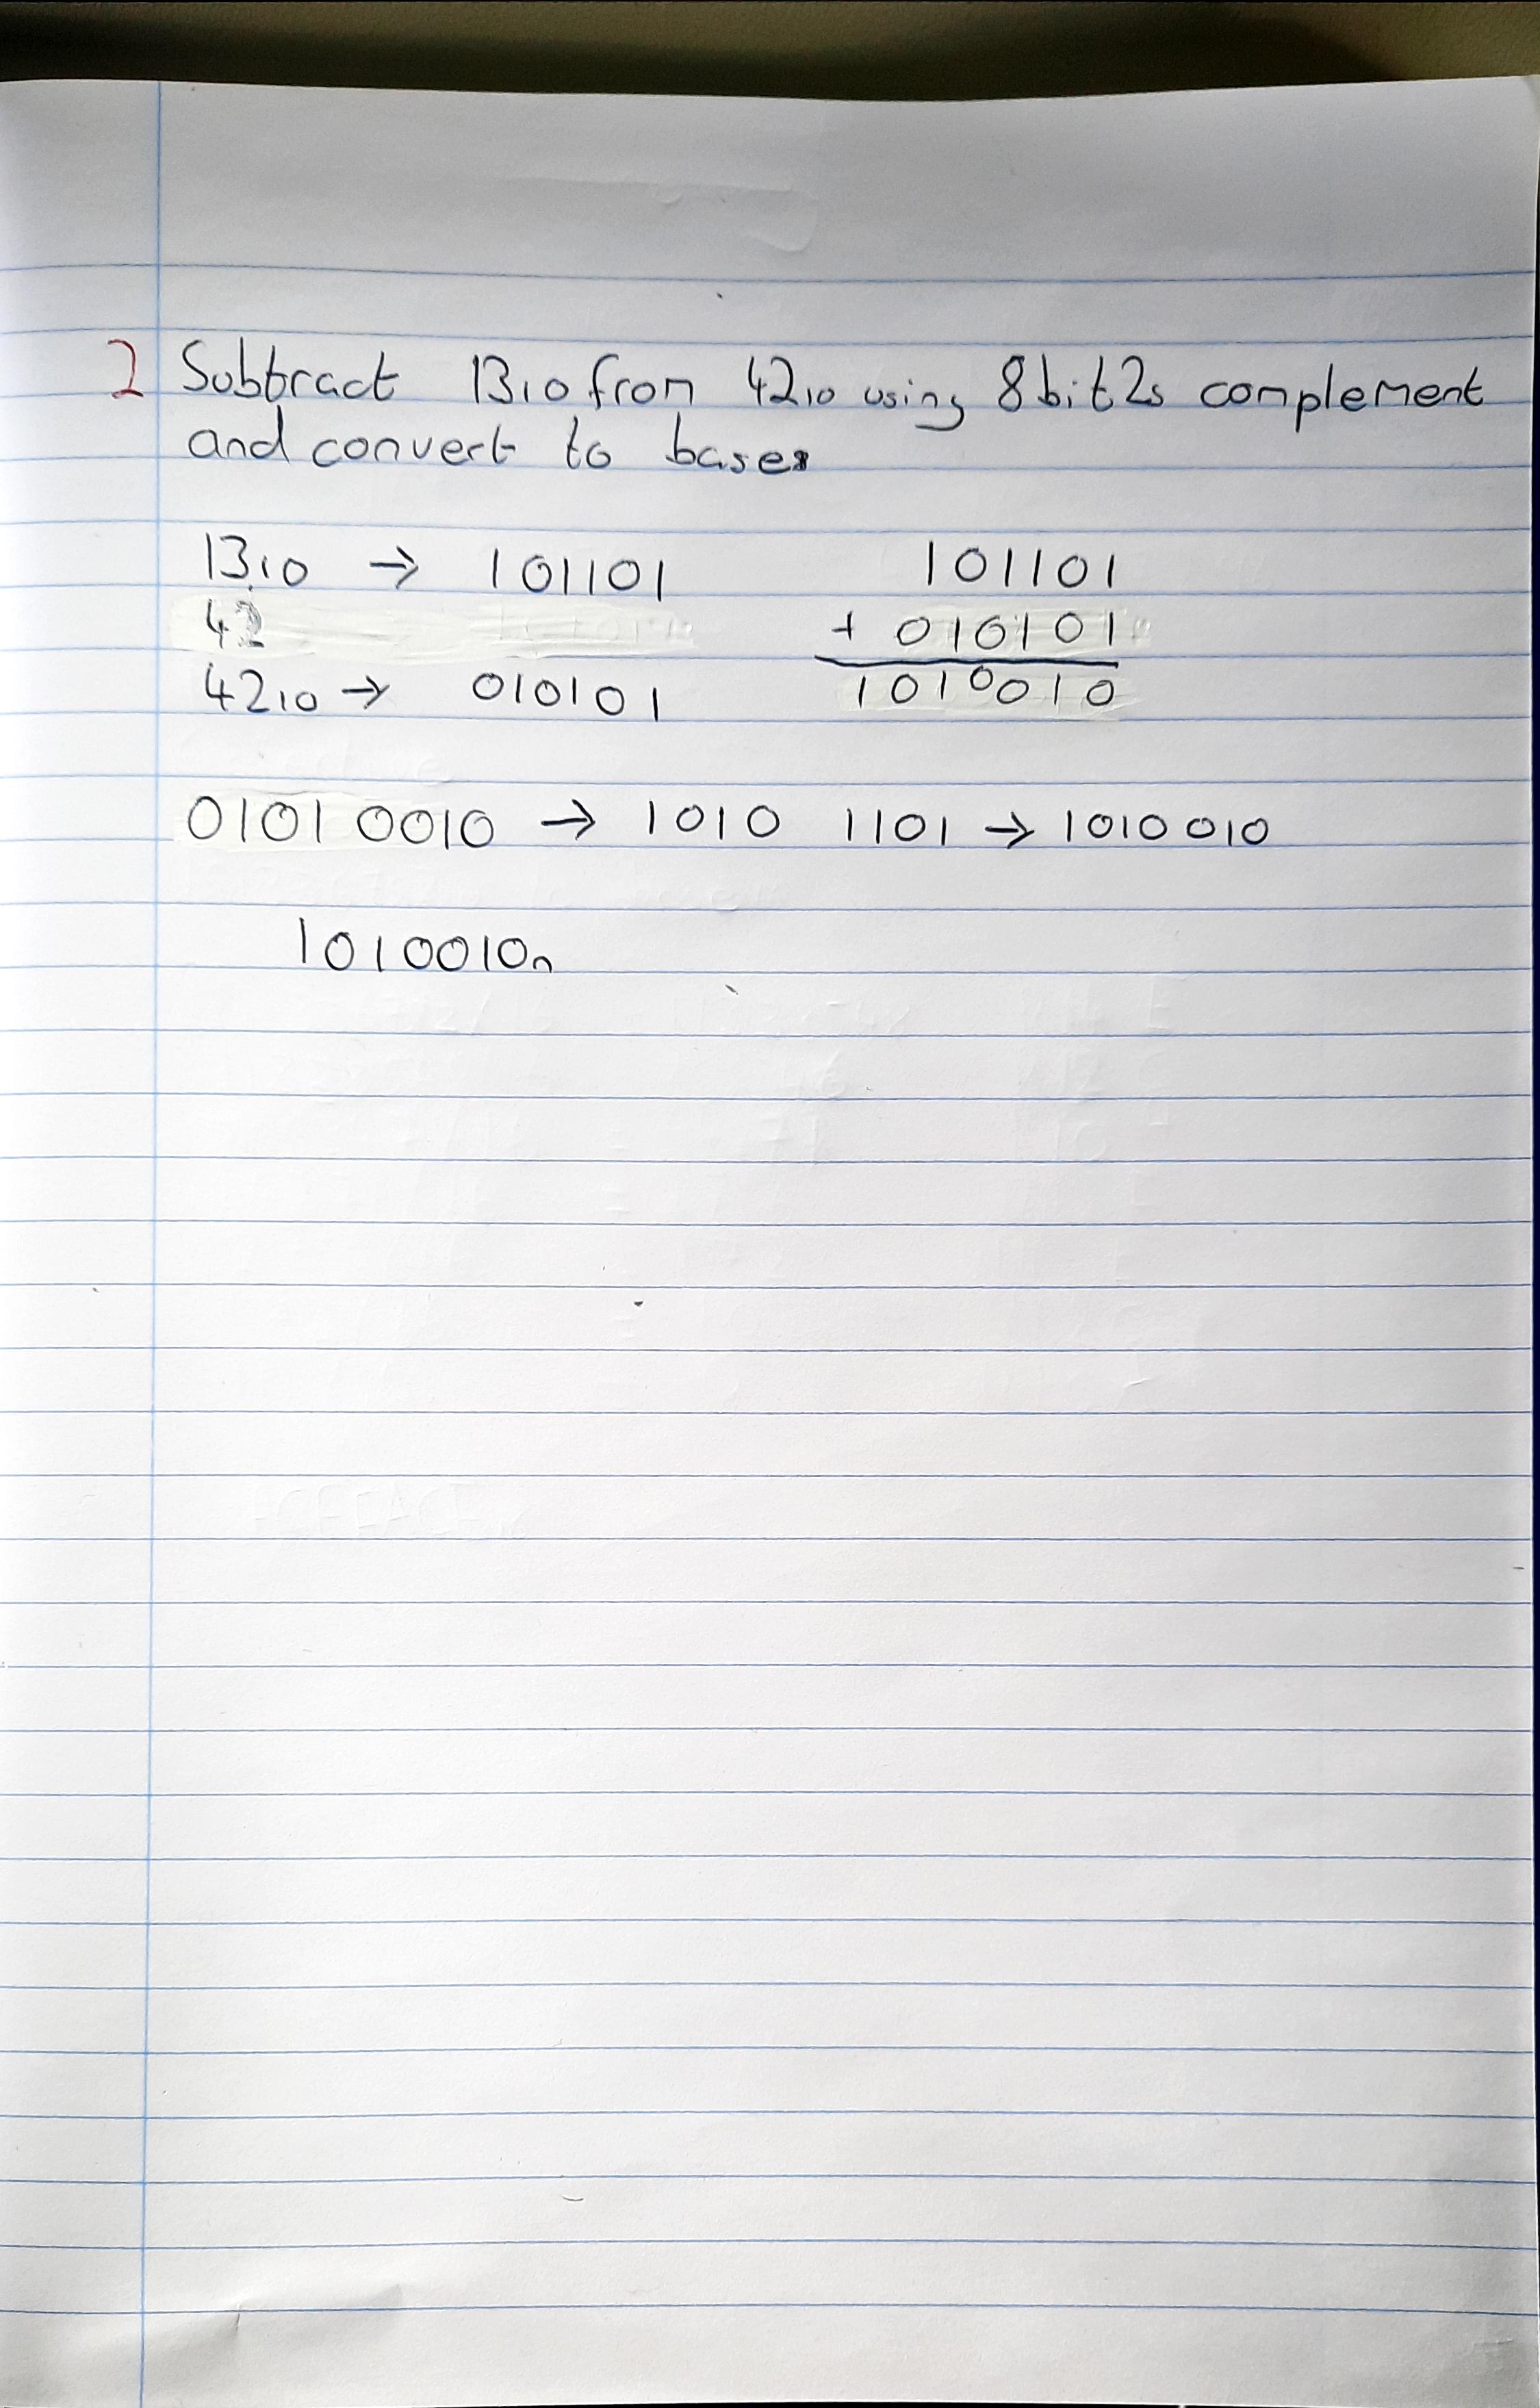 2 Subtract 13₁₀ from 42₁₀ using 8bit 2s complement
and convert to base₈
13₁₀ → 101101 101101
42 + 010101
42₁₀ → 010101 1010010
01010010 → 1010 1101 → 1010010
1010010n